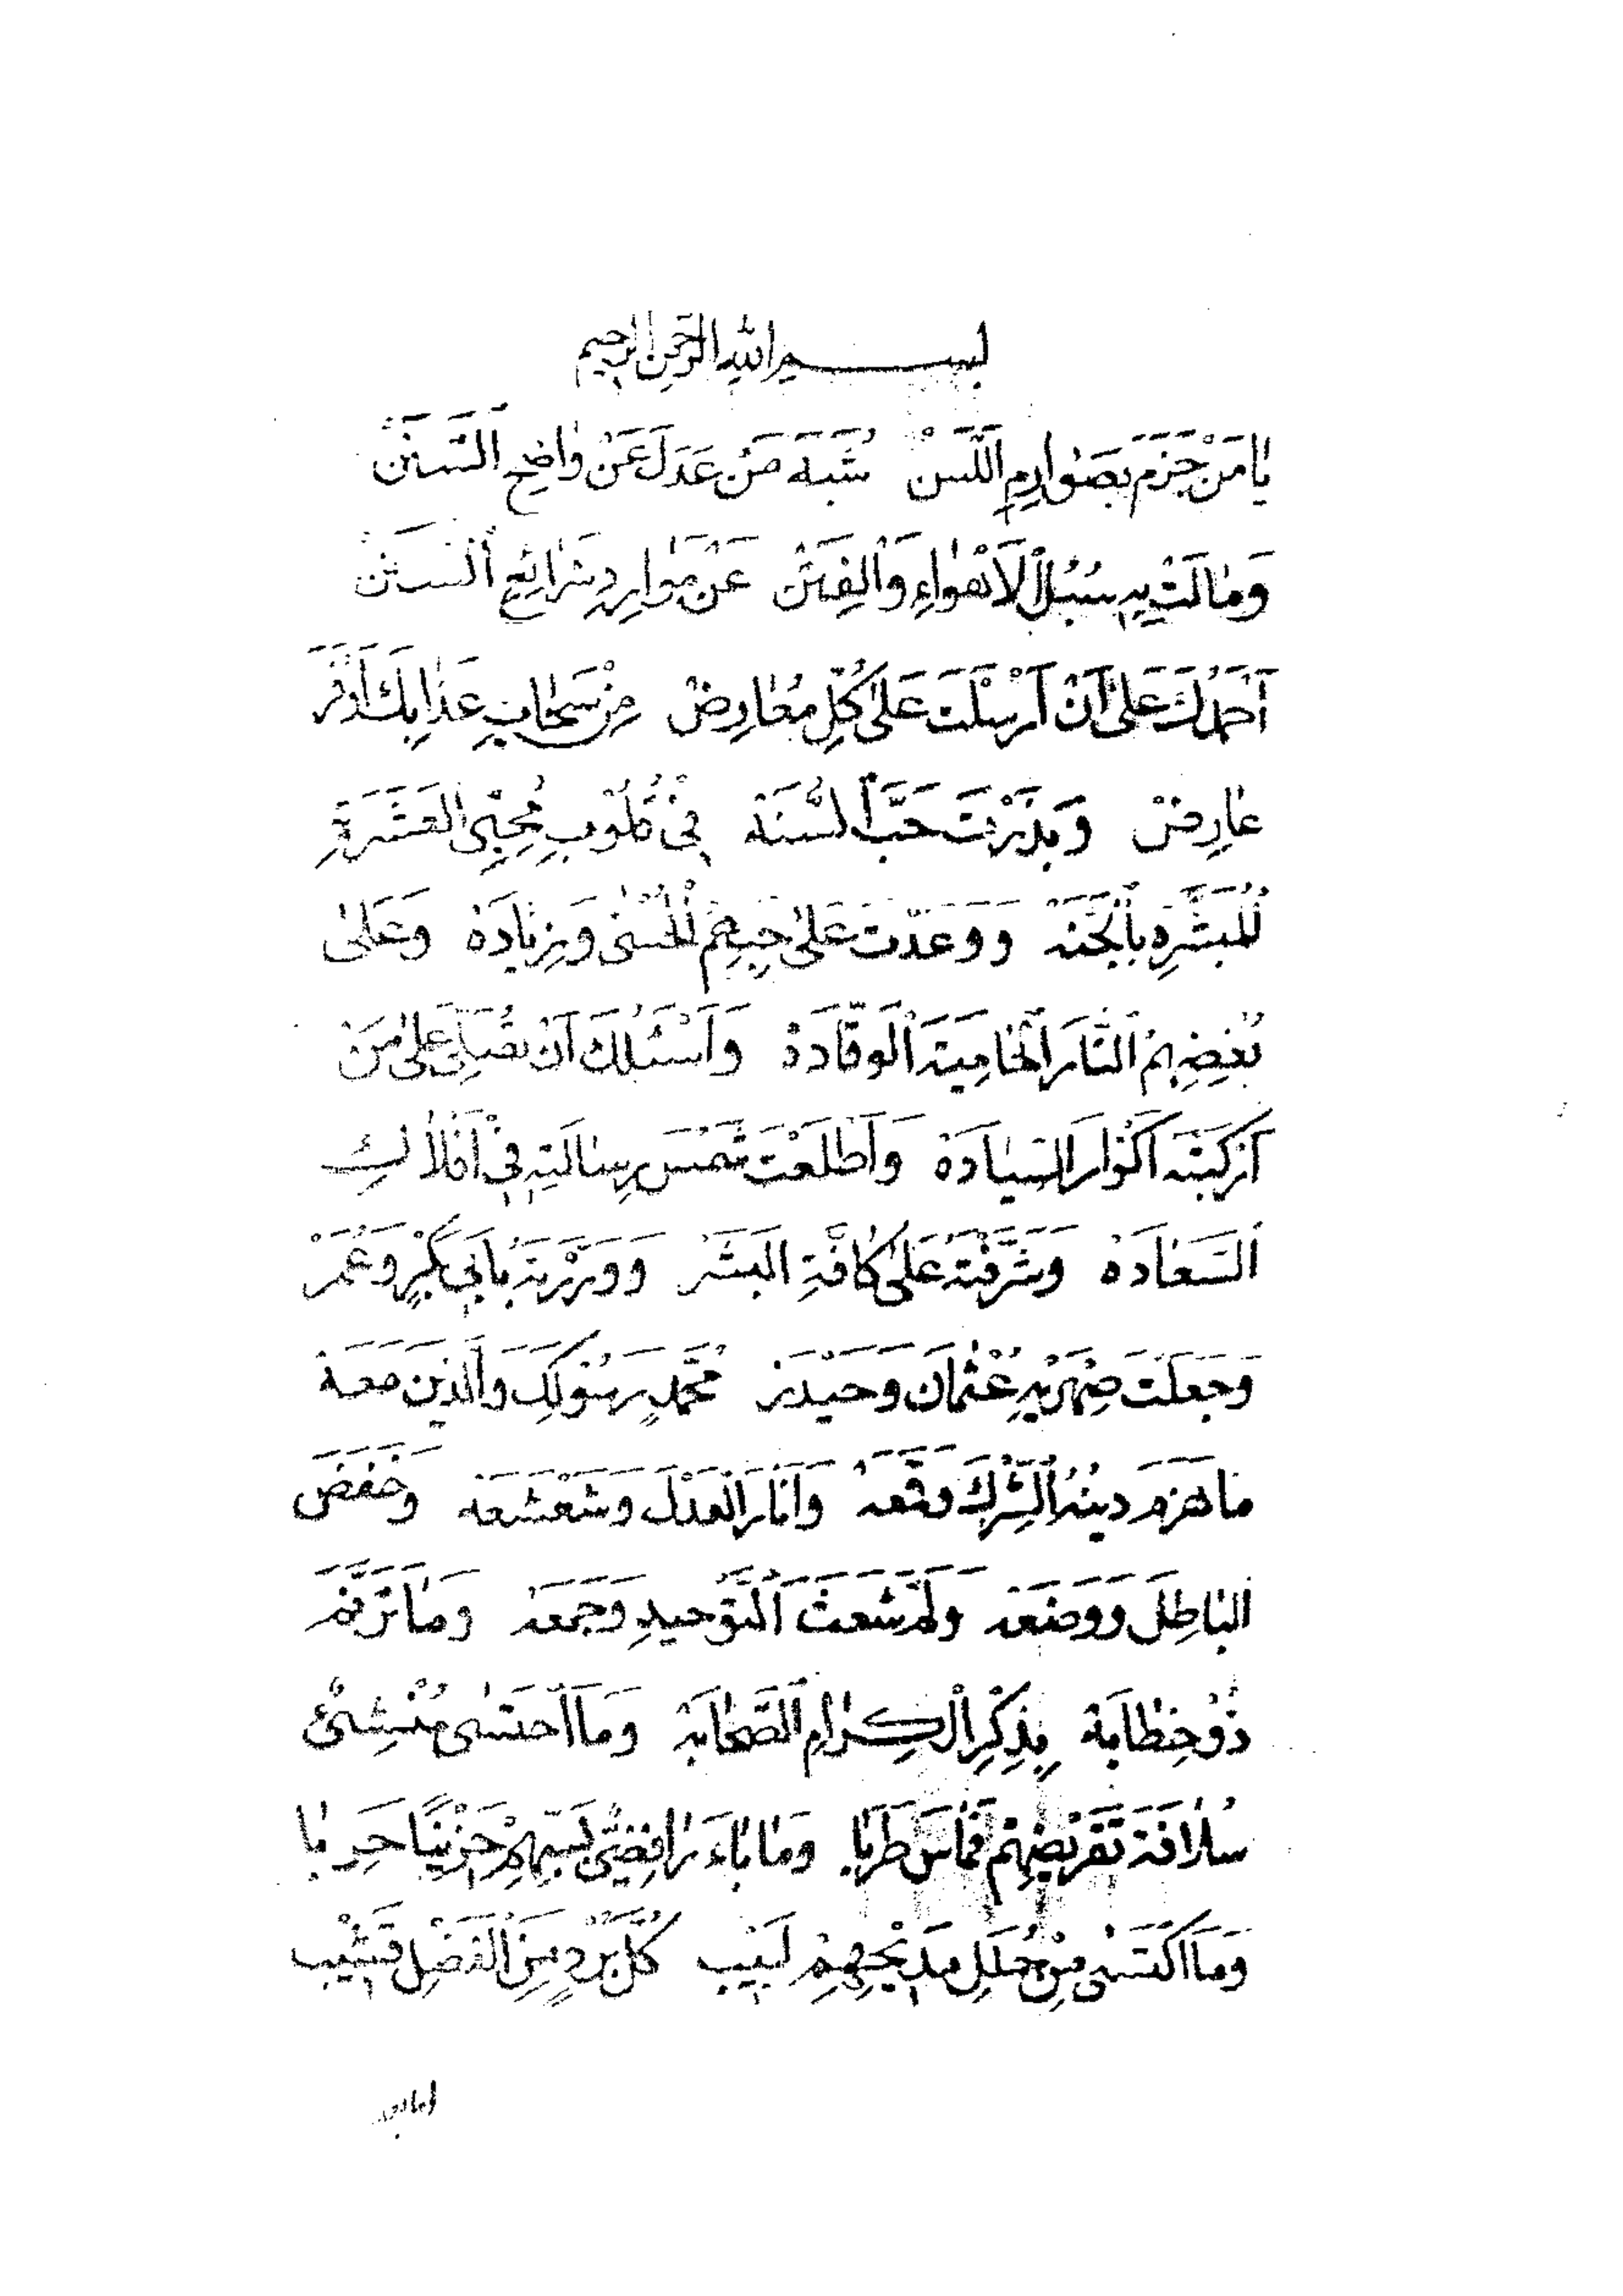 بسم الله الرحمن الرحيم
يٰا مَنْ جَزَمَ بِصَوٰارِمِ اللَّسَنْ شُبَهَ مَنْ عَدَلَ عَنْ وٰاضِحِ السَّنَنْ
وَمٰالَتْ بِهِ سُبُلُ الْاَهْوٰاءِ وَالْفِتَنْ عَنْ مَوٰارِدِ شَرٰائِعِ السُّنَنْ
اَحْمَدُكَ عَلىٰ اَنْ اَرْسَلْتَ عَلىٰ كُلِّ مُعٰارِضْ مِنْ سَحٰابِ عَذٰابِكَ
عٰارِضْ وَبَذَرْتَ حَبَّ السُّنَهْ فِي قُلُوبِ مُحِبِّي الْعَشَرَةِ
الْمُبَشَّرَةِ بِالْجَنَّهْ وَوَعَدْتَ عَلىٰ حُبِّهِمُ الْحُسْنىٰ وَزِيٰادَهْ وَعَلىٰ
بُغْضِهِمُ النّٰارَ الْحٰامِيَةَ الْوَقّٰادَهْ وَاَسْئَلُكَ اَنْ تُصَلِّيَ عَلىٰ مَنْ
اَرْكَبْتَهُ اَكْوٰارَ السِّيٰادَهْ وَاَطْلَعْتَ شَمْسَ رِسٰالَتِهِ فِي اَفْلٰاكِ
السَّعٰادَهْ وَشَرَّفْتَهُ عَلىٰ كٰافَّةِ الْبَشَرْ وَوَزَّرْتَهُ بِاَبِي بَكْرٍ وَعُمَرْ
وَجَعَلْتَ صِهْرَيْهِ عُثْمٰانَ وَحَيْدَرْ مُحَمَّدٍ رَسُولِكَ وَالَّذِينَ مَعَهْ
مٰا هَزَمَ دِينُهُ الشِّرْكَ وَقَمَعَهْ وَاَنٰارَ الْعَدْلَ وَشَعْشَعَهْ وَخَفَضَ
الْبٰاطِلَ وَوَضَعَهْ وَلَمَّ شَعَثَ التَّوْحِيدِ وَجَمَعَهْ وَمٰا تَرَنَّمَ
ذُو خِطٰابَهْ بِذِكْرِ الْكِرٰامِ الصَّحٰابَهْ وَمَا احْتَسىٰ مُنْشِئٌ
سُلٰافَةَ تَقْرِيضِهِمْ فَمٰاسَ طَرَبٰا وَمٰا بٰاءَ رٰافِضِيٌّ بِسَبِّهِمْ حَزِينًا حَرِبٰا
وَمَا اكْتَسىٰ مِنْ حُلَلِ مَدِيحِهِمْ لَبِيبْ كُلَّ بُرْدٍ مِنَ الْفَضْلِ قَشِيبْ
اما بعد